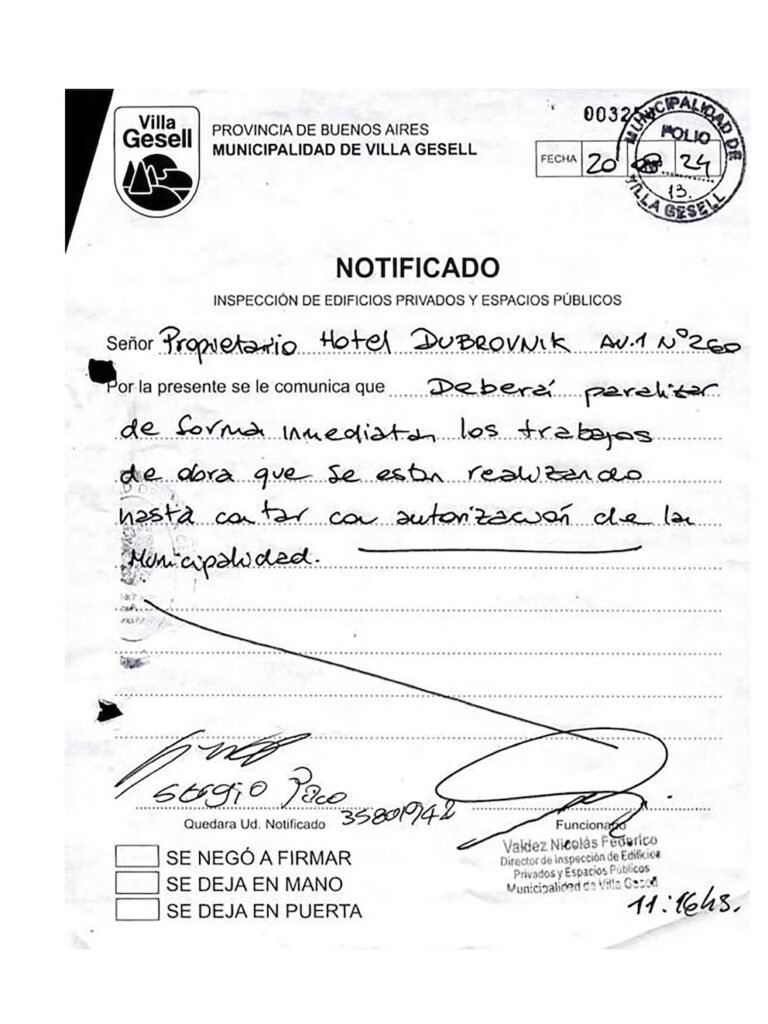 Villa
Gesell
PROVINCIA DE BUENOS AIRES
MUNICIPALIDAD DE VILLA GESELL
0032
MUNICIPALIDAD DE
FOLIO
13.
VILLA GESELL
FECHA 20 08 24
NOTIFICADO
INSPECCIÓN DE EDIFICIOS PRIVADOS Y ESPACIOS PÚBLICOS
Señor Propietario Hotel DUBROVNIK AV.1 Nº260
Por la presente se le comunica que Deberá paralizar
de forma inmediata los trabajos
de obra que se estan realizando
hasta contar con autorización de la
Municipalidad.
Sergio
35801942
Quedara Ud. Notificado
Funcionario
Valdez Nicolás Federico
Director de Inspección de Edificios
Privados y Espacios Públicos
Municipalidad de Villa Gesell
SE NEGÓ A FIRMAR
SE DEJA EN MANO
SE DEJA EN PUERTA
11:16hs.